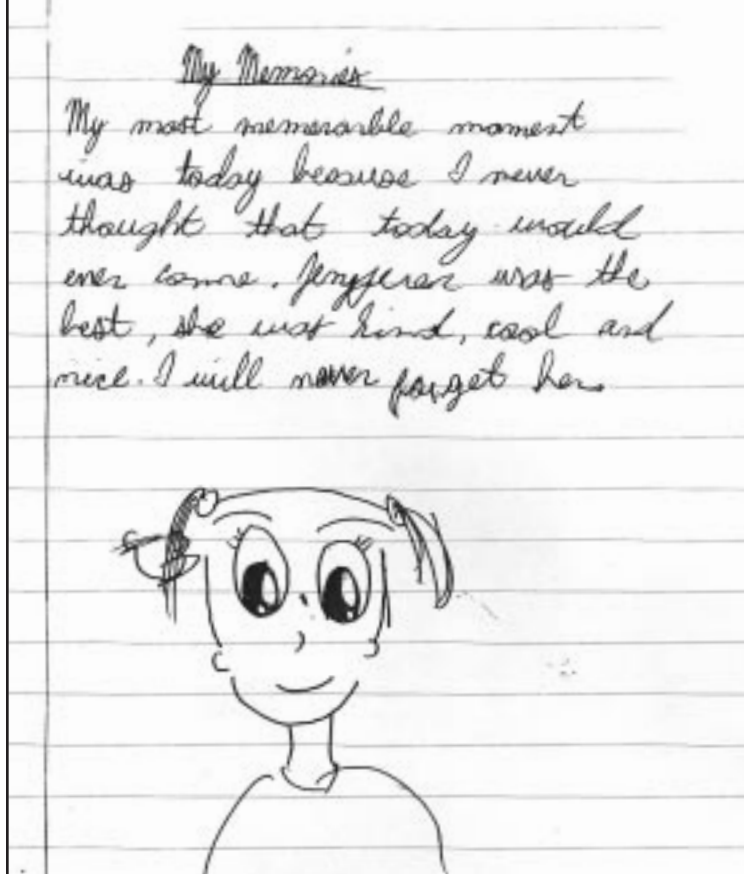 My Memories
My most memorable moment
was today because I never
thought that today would
ever come. was the
best, she was kind, cool and
nice. I will never forget her.